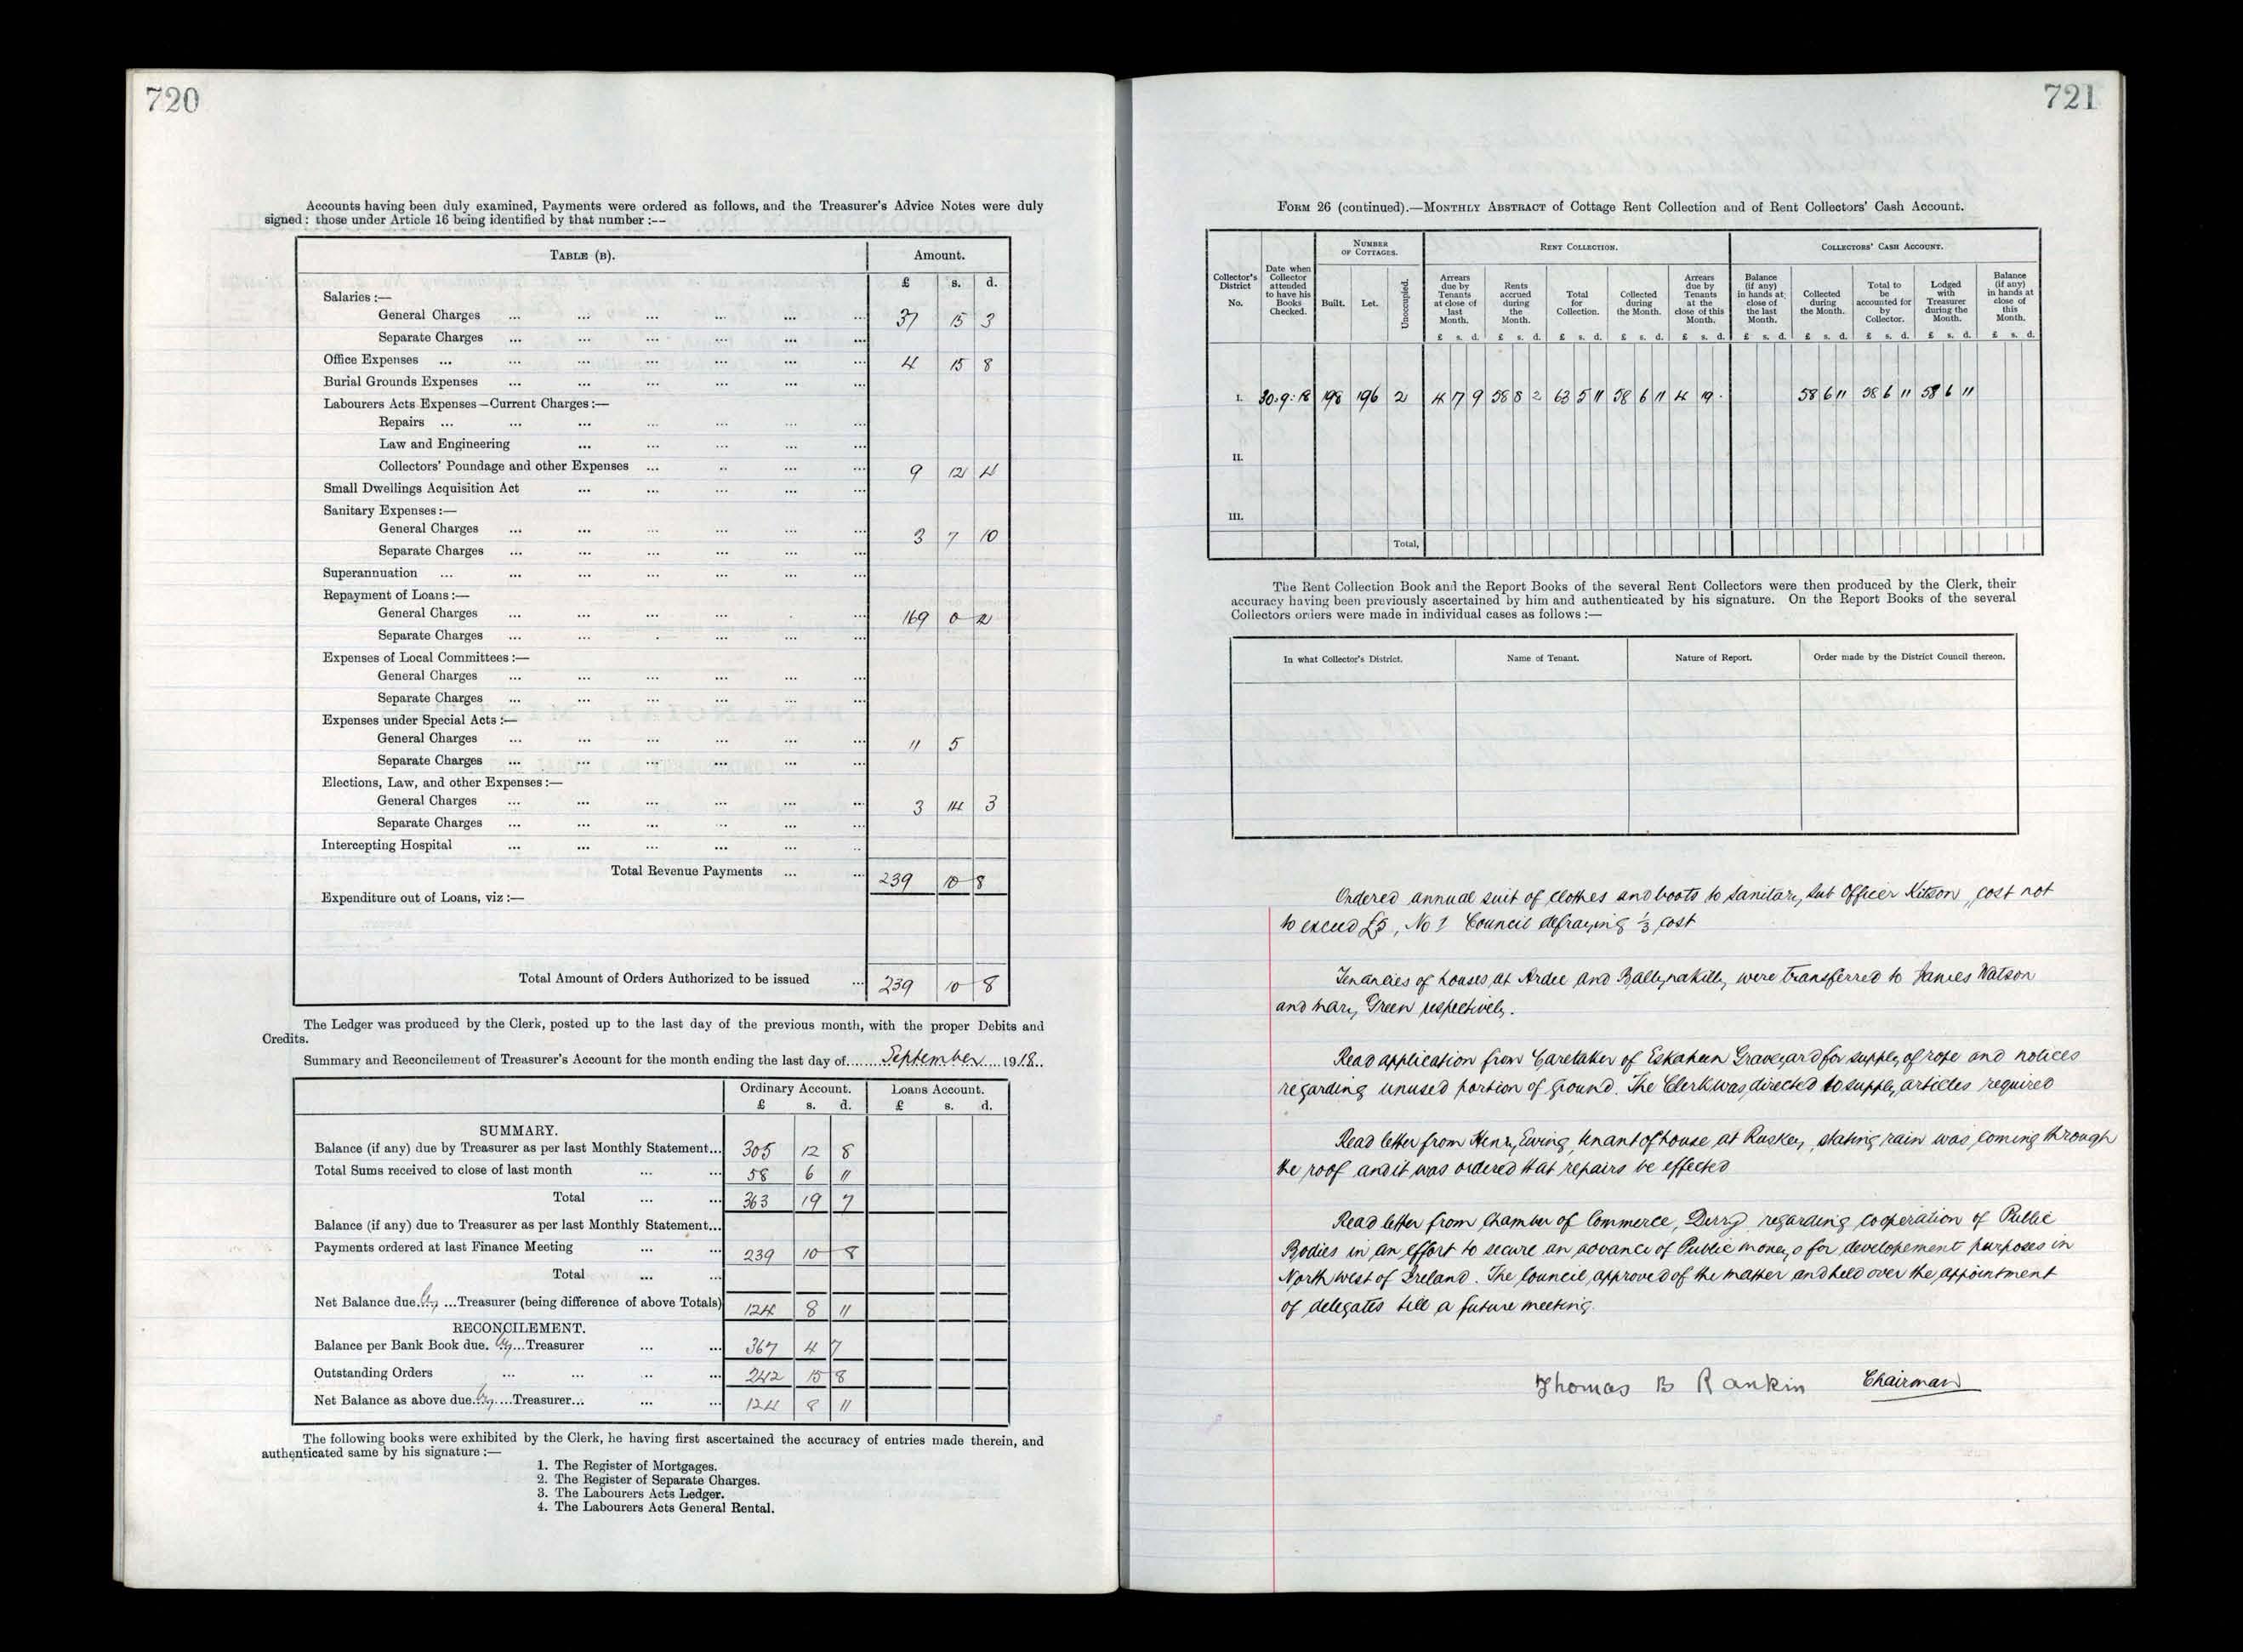 720
Accounts having been duly examined, Payments were ordered as follows, and the Treasurer's Advice Notes were duly
signed: those under Article 16 being identified by that number :--
TABLE (B). Amount.
£ s. d.
Salaries :—
General Charges ... ... ... ... ... ... 37 15 3
Separate Charges ... ... ... ... ... ...
Office Expenses ... ... ... ... ... ... ... 4 15 8
Burial Grounds Expenses ... ... ... ... ... ...
Labourers Acts Expenses—Current Charges :—
Repairs ... ... ... ... ... ... ...
Law and Engineering ... ... ... ... ...
Collectors' Poundage and other Expenses ... ... ... ... 9 12 4
Small Dwellings Acquisition Act ... ... ... ... ...
Sanitary Expenses :—
General Charges ... ... ... ... ... ... 3 7 10
Separate Charges ... ... ... ... ... ...
Superannuation ... ... ... ... ... ... ...
Repayment of Loans :—
General Charges ... ... ... ... ... ... 169 0 2
Separate Charges ... ... ... ... ... ...
Expenses of Local Committees :—
General Charges ... ... ... ... ... ...
Separate Charges ... ... ... ... ... ...
Expenses under Special Acts :—
General Charges ... ... ... ... ... ... 11 5
Separate Charges ... ... ... ... ... ...
Elections, Law, and other Expenses :—
General Charges ... ... ... ... ... ... 3 14 3
Separate Charges ... ... ... ... ... ...
Intercepting Hospital ... ... ... ... ... ...
Total Revenue Payments ... ... 239 10 8
Expenditure out of Loans, viz :—
Total Amount of Orders Authorized to be issued ... 239 10 8
The Ledger was produced by the Clerk, posted up to the last day of the previous month, with the proper Debits and
Credits.
Summary and Reconcilement of Treasurer's Account for the month ending the last day of September 1918
Ordinary Account. Loans Account.
£ s. d. £ s. d.
SUMMARY.
Balance (if any) due by Treasurer as per last Monthly Statement... 305 12 8
Total Sums received to close of last month ... ... 58 6 11
Total ... ... 363 19 7
Balance (if any) due to Treasurer as per last Monthly Statement...
Payments ordered at last Finance Meeting ... ... 239 10 8
Total ... ...
Net Balance due by Treasurer (being difference of above Totals) 124 8 11
RECONCILEMENT.
Balance per Bank Book due by Treasurer ... ... 367 4 7
Outstanding Orders ... ... ... ... 242 15 8
Net Balance as above due by Treasurer... ... ... 124 8 11
The following books were exhibited by the Clerk, he having first ascertained the accuracy of entries made therein, and
authenticated same by his signature :—
1. The Register of Mortgages.
2. The Register of Separate Charges.
3. The Labourers Acts Ledger.
4. The Labourers Acts General Rental.
721
FORM 26 (continued).—MONTHLY ABSTRACT of Cottage Rent Collection and of Rent Collectors' Cash Account.
Collector's District No. Date when Collector attended to have his Books Checked. NUMBER OF COTTAGES. RENT COLLECTION. COLLECTORS' CASH ACCOUNT.
Built. Let. Unoccupied. Arrears due by Tenants at close of last Month. Rents accrued during the Month. Total for Collection. Collected during the Month. Arrears due by Tenants at the close of this Month. Balance (if any) in hands at close of the last Month. Collected during the Month. Total to be accounted for by Collector. Lodged with Treasurer during the Month. Balance (if any) in hands at close of this Month.
£ s. d. £ s. d. £ s. d. £ s. d. £ s. d. £ s. d. £ s. d. £ s. d. £ s. d. £ s. d.
I. 30.9.18 198 196 2 4 7 9 58 8 2 63 5 11 58 6 11 4 19 . 58 6 11 58 6 11 58 6 11
II.
III.
Total,
The Rent Collection Book and the Report Books of the several Rent Collectors were then produced by the Clerk, their
accuracy having been previously ascertained by him and authenticated by his signature. On the Report Books of the several
Collectors orders were made in individual cases as follows :—
In what Collector's District. Name of Tenant. Nature of Report. Order made by the District Council thereon.
Ordered annual suit of clothes and boots to Sanitary Sub Officer Kitson, cost not
to exceed £5, No 1 Council defraying 1/3 cost
Tenancies of houses at Ardee and Ballynakilly were transferred to James Watson
and Mary Green respectively.
Read application from Caretaker of Eskaheen Graveyard for supply of rope and notices
regarding unused portion of ground. The Clerk was directed to supply articles required
Read letter from Henry Ewing, tenant of house at Ruskey, stating rain was coming through
the roof and it was ordered that repairs be effected
Read letter from Chamber of Commerce, Derry regarding cooperation of Public
Bodies in an effort to secure an advance of Public moneys for developement purposes in
North West of Ireland. The Council approved of the matter and held over the appointment
of delegates till a future meeting.
Thomas B Rankin Chairman